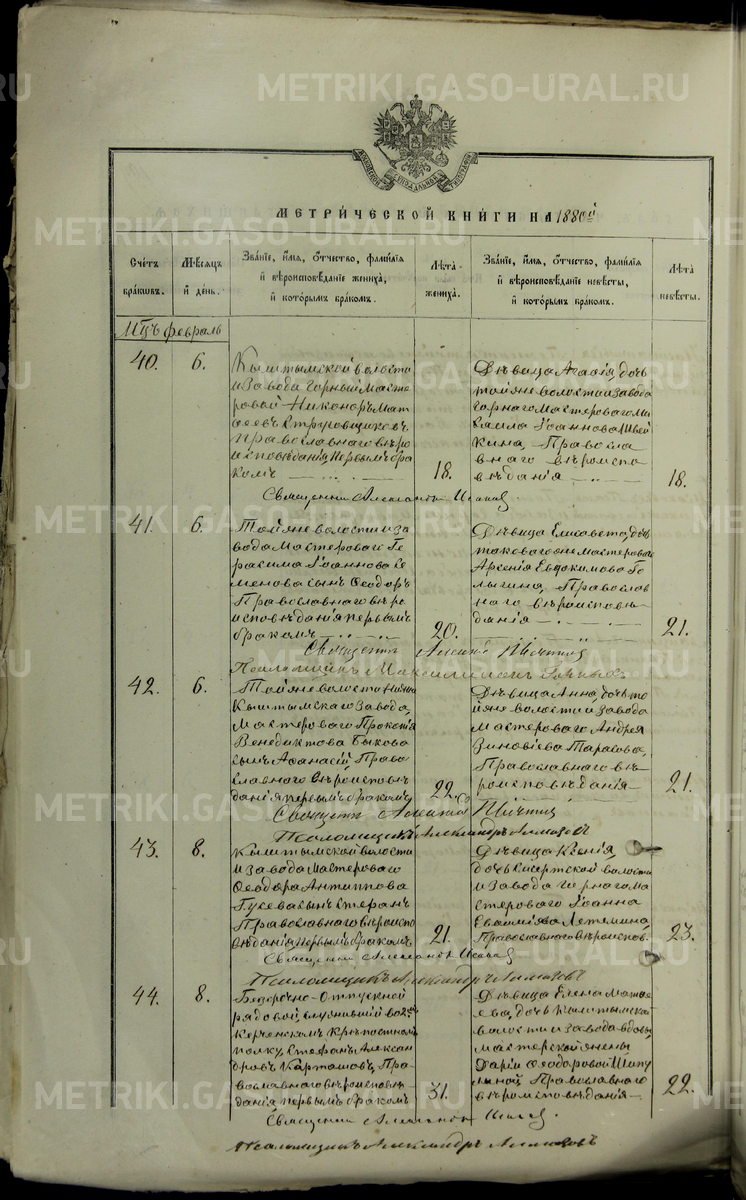 METRIKI.GASO-URAL.RU
МОСКОВСКОЙ СѴНОДАЛЬНОЙ ТИПОГРАФІИ
МЕТРИ́ЧЕСКОЙ КНИ́ГИ НА 1880й
Сче́тъ бра́кωвъ.
Мѣсяцъ й де́нь.
Зва́ніе, и́мя, о́тчество, фамилія й вѣроисповѣ́даніе жениха̀, й кото́рымъ бра́комъ.
Лѣта̀ жениха̀.
Зва́ніе, и́мя, о́тчество, фамилія й вѣроисповѣ́даніе невѣсты, й кото́рымъ бра́комъ.
Лѣта̀ невѣсты.
Мцъ февраль
40. 6.
Кыштымской волости
и завода горный масте
ровой Никоноръ Мат
ѳеевъ Струговщиковъ,
Православнаго вѣро
исповѣданія, первымъ бра
комъ
18.
Дѣвица Агаѳія, дочь
той же волости и завода
горнаго мастероваго Ми
хаила Іоаннова Швей
кина, Правосла
внаго вѣроиспо
вѣданія
18.
Священникъ
41. 6.
Той же волости и за
вода мастероваго Ге
расима Іоаннова Се
менова сынъ Ѳеодоръ
Православнаго вѣро
исповѣданія первымъ
бракомъ
20.
Дѣвица Елисавета, дочь
таковаго же мастероваго
Арсенія Евдокимова Го
лыгина, Православ
наго вѣроисповѣ
данія
21.
Священникъ
Псаломщикъ Максимиліанъ
42. 6.
Той же волости Нижне
Кыштымскаго завода,
мастероваго Прокопія
Венедиктова Быкова
сынъ Аѳанасій Право
славнаго вѣроисповѣ
данія первымъ бракомъ
22.
Дѣвица Анна, дочь то
й же волости и завода
мастероваго Андрея
Зиновіева Тарасова,
Православнаго вѣ
роисповѣданія
21.
Священникъ
Псаломщикъ Александръ Алмазовъ
43. 8.
Кыштымской волости
и завода мастероваго
Ѳеодора Антипова
Гусева сынъ Стефанъ
Православнаго вѣроиспо
вѣданія первымъ бракомъ
21.
Дѣвица Ксенія,
дочь Сысертской волости
и завода горнаго ма
стероваго Іоанна
Летемина,
Православнаго вѣроиспов.
23.
Священникъ
Псаломщикъ Александръ Алмазовъ
44. 8.
Безсрочно-отпускной
рядовой, служившій во 2омъ
Керченскомъ Крѣпостномъ
полку, Стефанъ Алексан
дровъ Карташовъ, Пра
вославнаго вѣроисповѣ
данія, первымъ бракомъ
31.
Дѣвица Елена Матѳе
ева, дочь Кыштымской
волости и завода вдовы,
мастерской жены
Даріи Ѳеодоровой
Православнаго
вѣроисповѣданія
22.
Священникъ
Псаломщикъ Александръ Алмазовъ